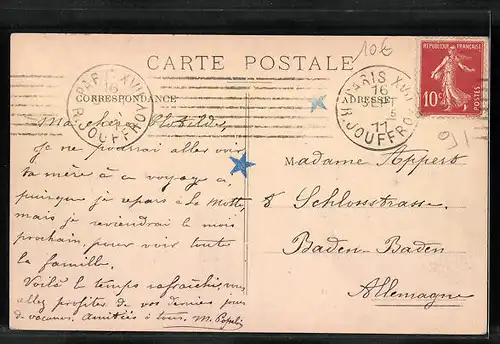 10€
CARTE POSTALE
CORRESPONDANCE
ADRESSE
PARIS XVII
R. JOUFFROY
16
PARIS XVII
16
SEPT
11
R. JOUFFROY
REPUBLIQUE FRANÇAISE
10c
POSTES
91
Ma chère Clotilde,
Je ne pourrai aller voir
ta mère à ce voyage ci,
puisque je repars à la Motte,
mais je reviendrai le mois
prochain, pour voir toute
la famille.
Voilà le temps rafraîchi, vous
allez profiter de vos derniers jours
de vacances. Amitiés à tous. M.
Madame Appert
8 Schlossstrasse.
Baden-Baden
Allemagne